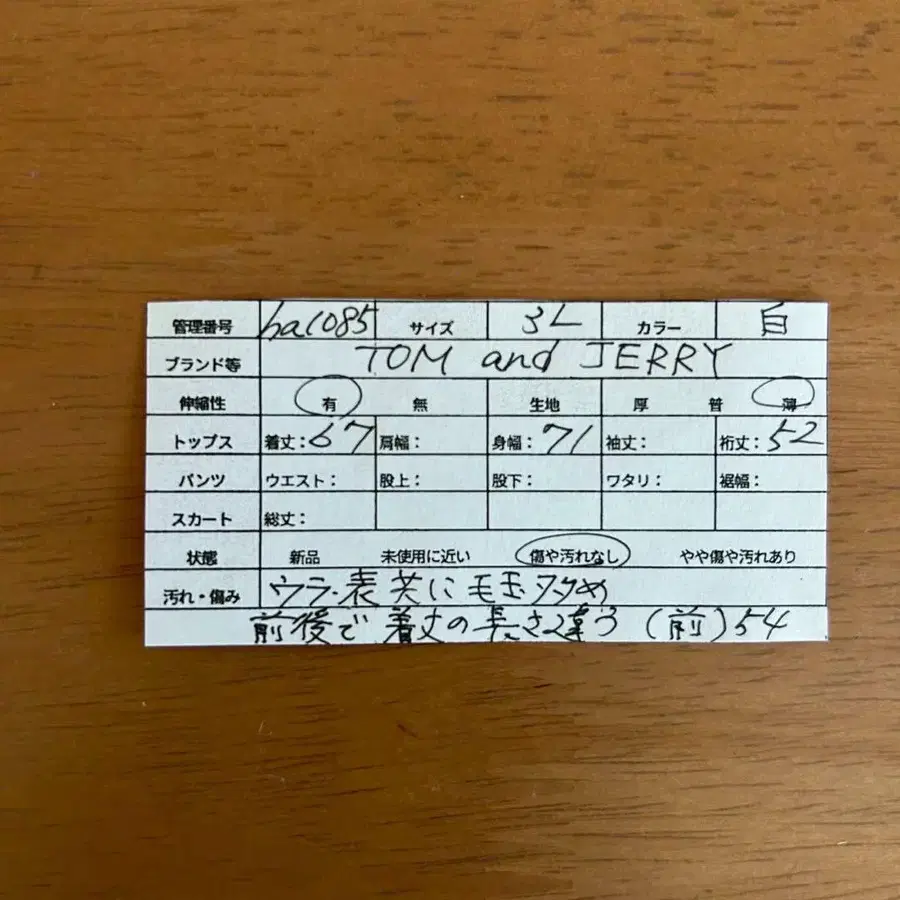 管理番号 hac085 サイズ 3L カラー 白
ブランド等 TOM and JERRY
伸縮性 有 無 生地 厚 普 薄
トップス 着丈:67 肩幅: 身幅:71 袖丈: 裄丈:52
パンツ ウエスト: 股上: 股下: ワタリ: 裾幅:
スカート 総丈:
状態 新品 未使用に近い 傷や汚れなし やや傷や汚れあり
汚れ・傷み ウラ・表共に毛玉多め
前後で着丈の長さ違う (前)54